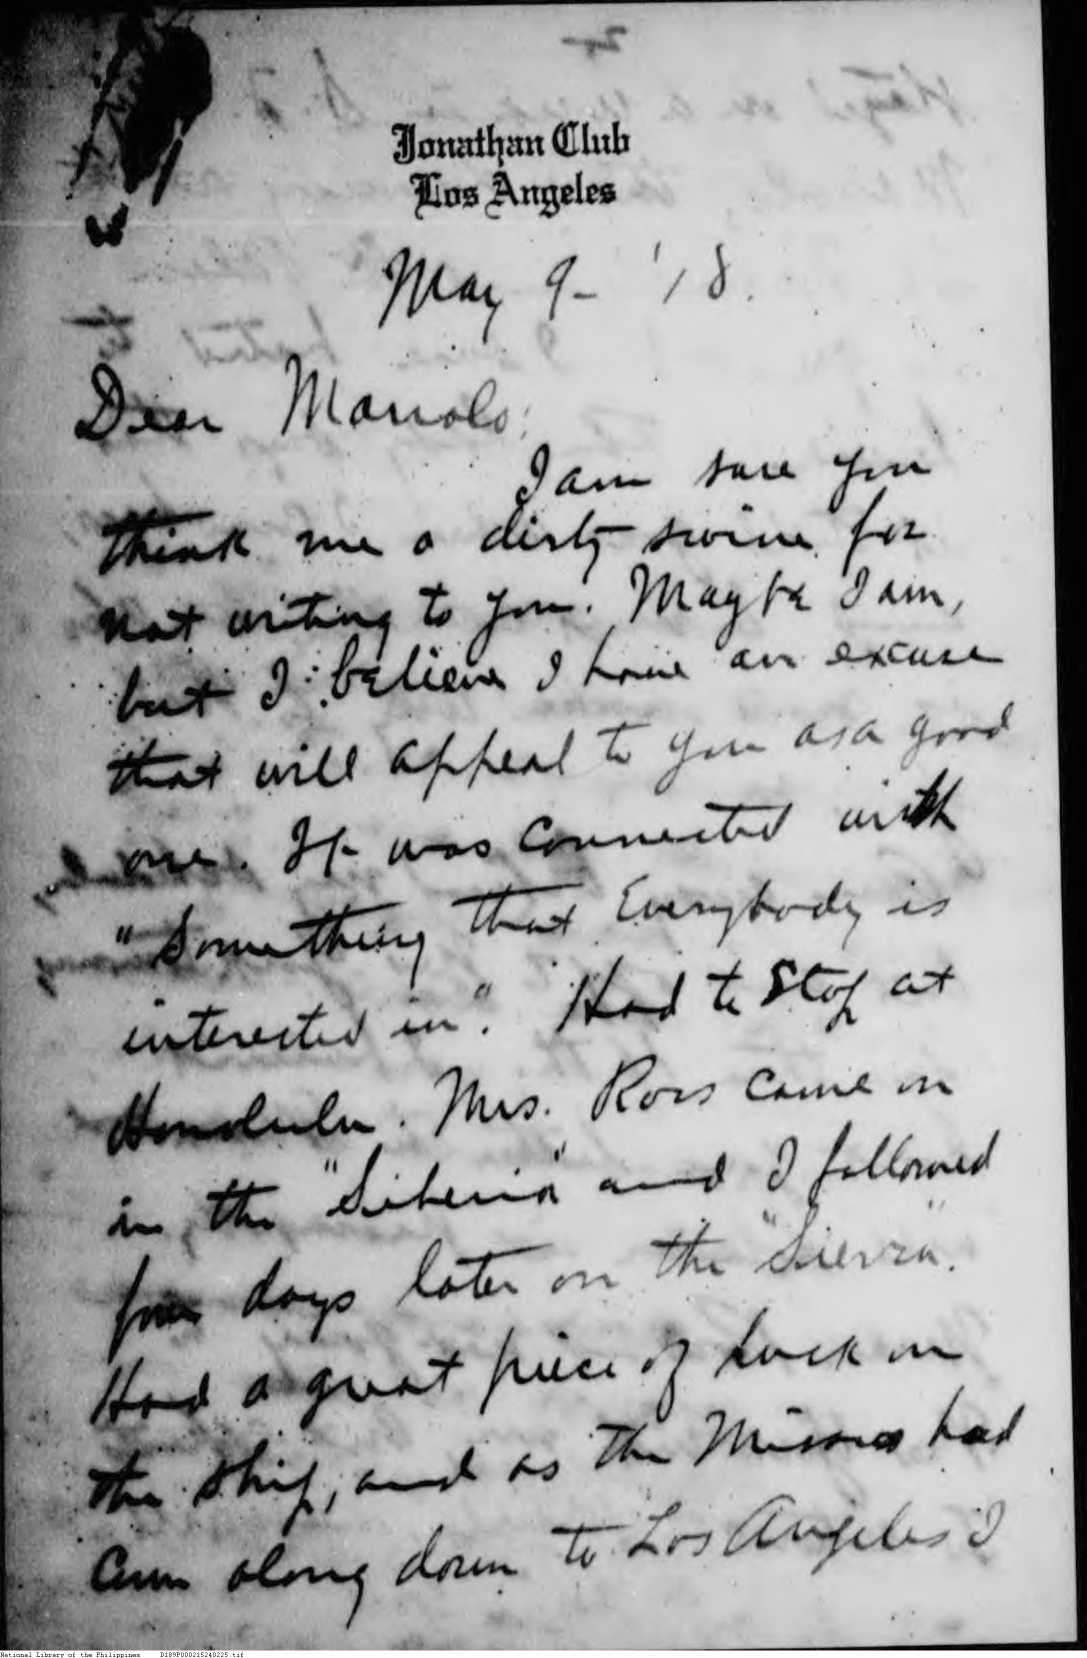 Jonathan Club
Los Angeles
May 9- '18.
Dear Manolo:
I am sure you
think me a dirty swine for
not writing to you. Maybe I am,
but I believe I have an excuse
that will appeal to you as a good
one. It was connected with
"Something that Everybody is
interested in". Had to stop at
Honolulu. Mrs. Ross came on
in the "Siberia" and I followed
four days later on the "Sierra".
Had a great piece of luck on
the ship, and as the Missus had
come along down to Los Angeles I
National Library of the Philippines D189P000215240225.tif